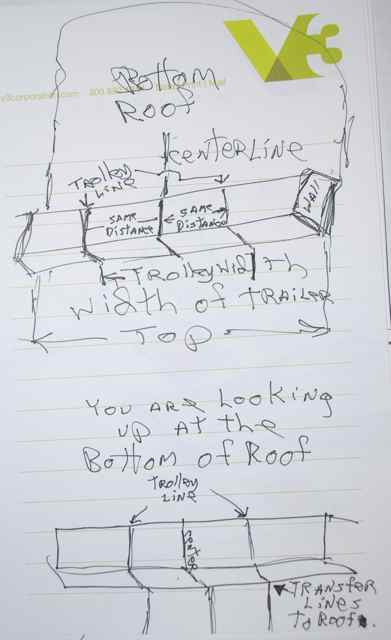 V3
Bottom
Roof
centerLine
Trolley
Line
SAME
Distance
SAME
Distance
WALL
Trolley Width
Width of TRAILER
Top
You are Looking
up at the
Bottom of Roof
Trolley
Line
center
TRANSFER
Lines
To Roof.